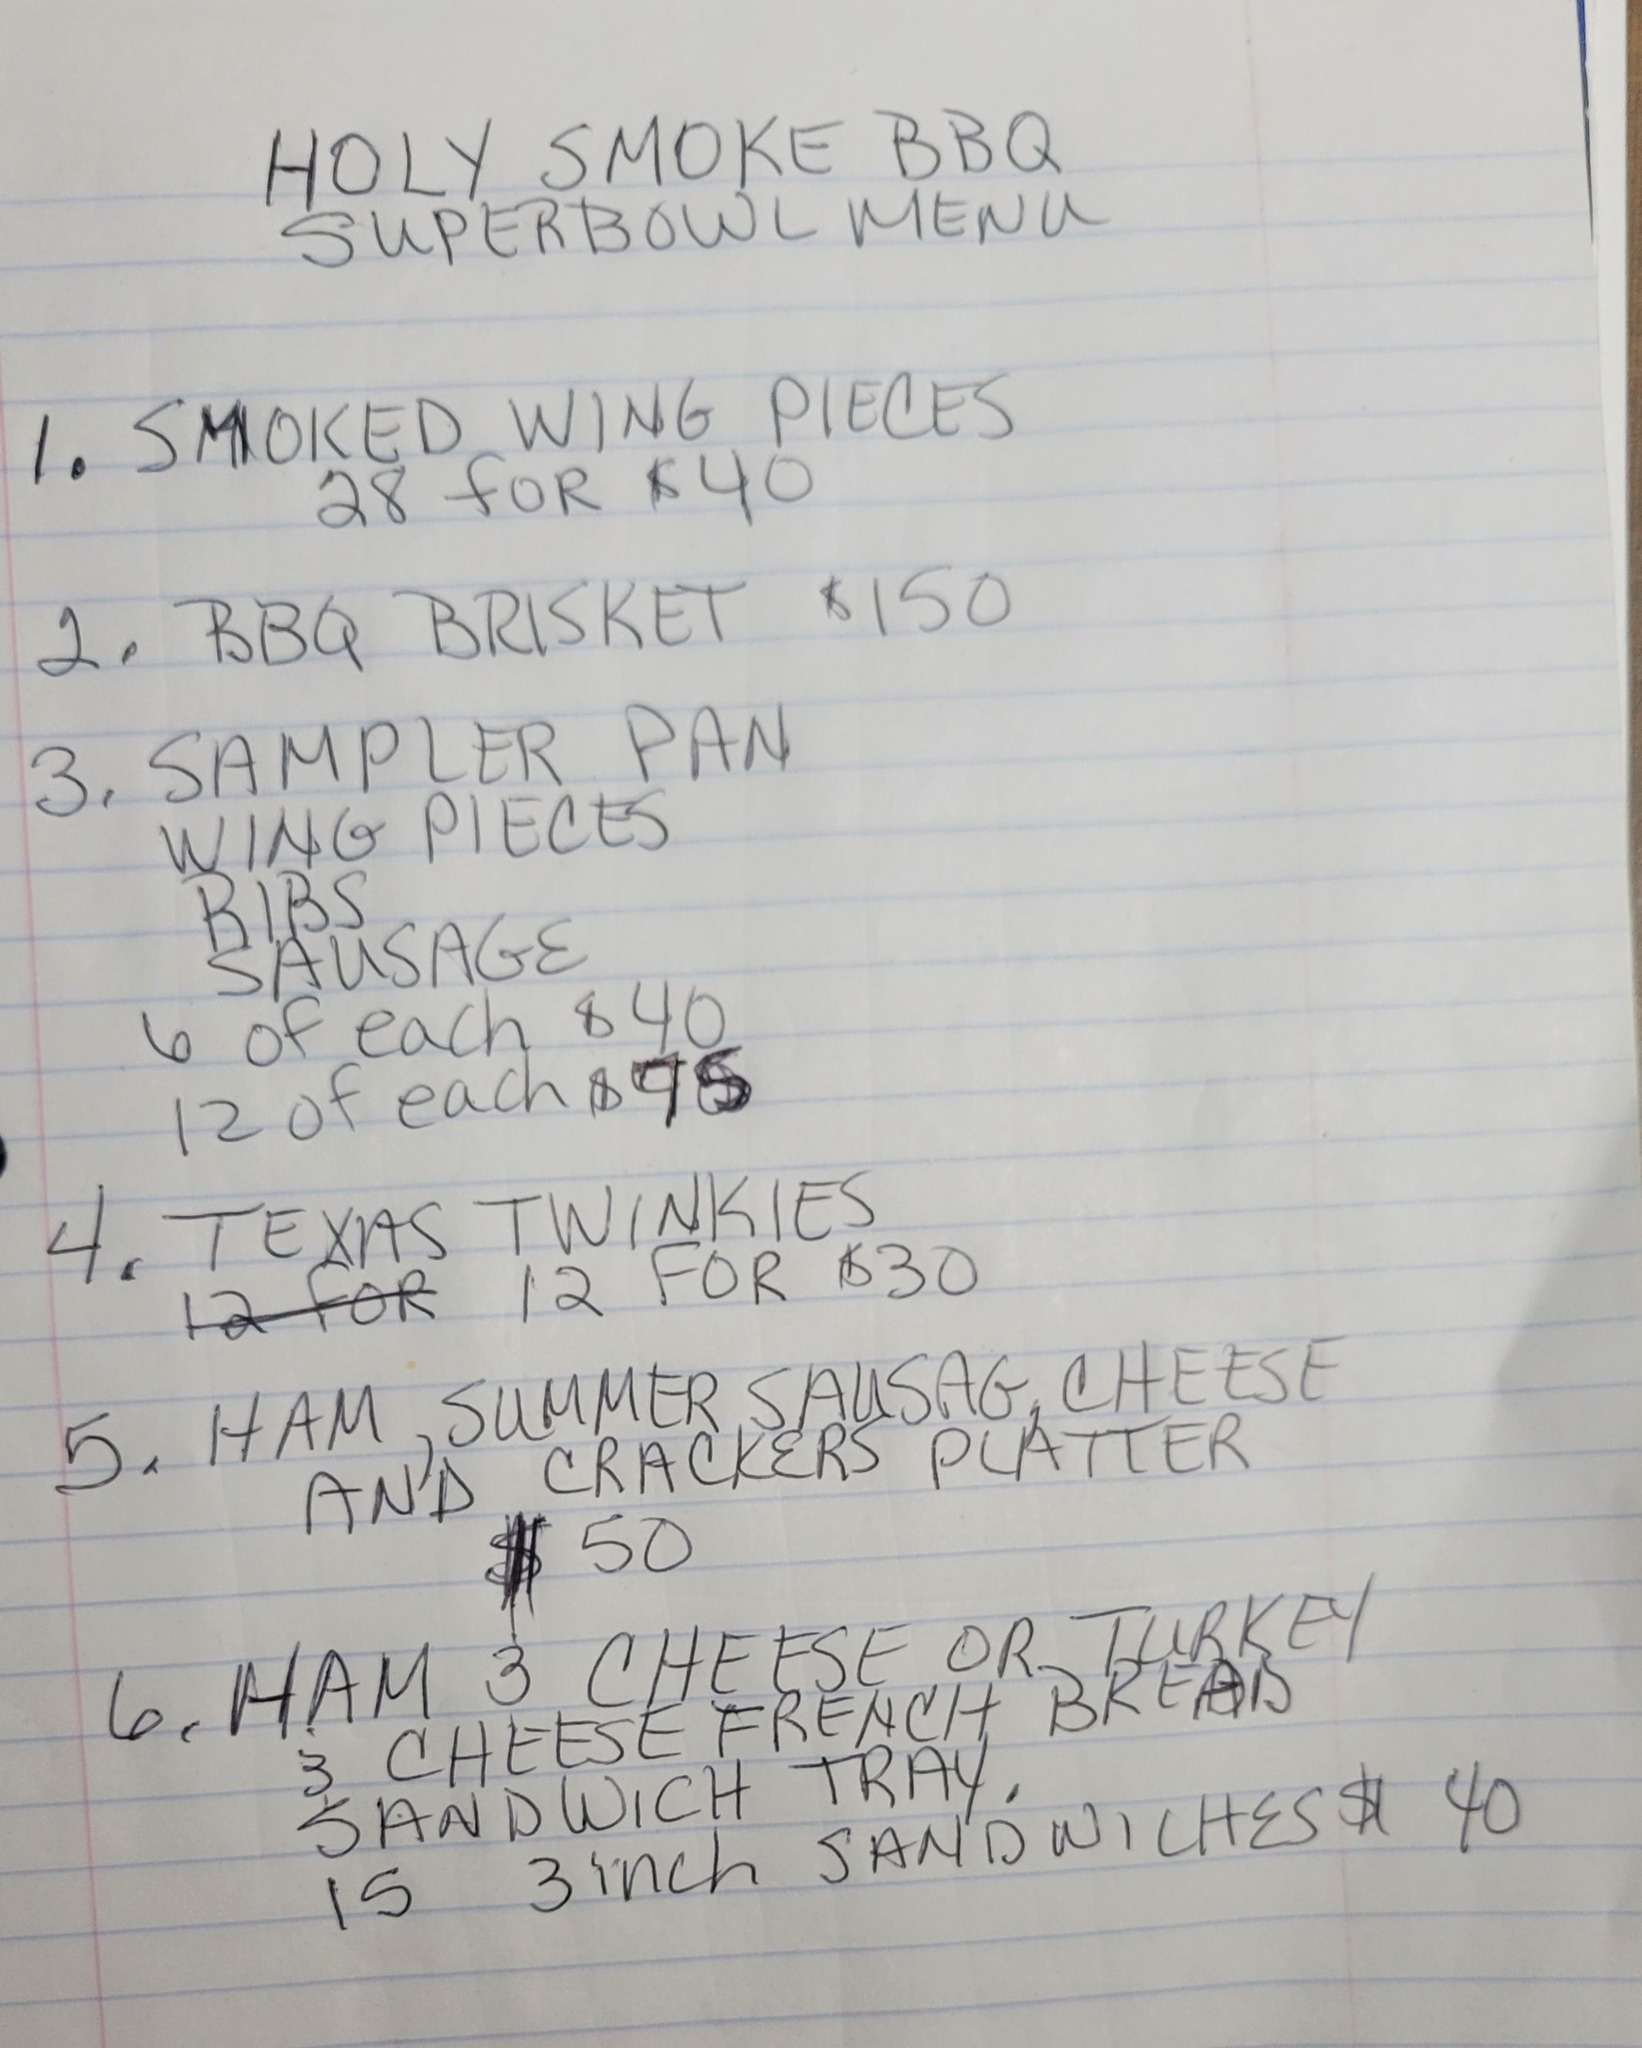 HOLY SMOKE BBQ
SUPERBOWL MENU
1. SMOKED WING PIECES
28 FOR $40
2. BBQ BRISKET $150
3. SAMPLER PAN
WING PIECES
RIBS
SAUSAGE
6 of each $40
12 of each $75
4. TEXAS TWINKIES
12 FOR 12 FOR $30
5. HAM, SUMMER SAUSAG, CHEESE
AND CRACKERS PLATTER
$50
6. HAM 3 CHEESE OR TURKEY
3 CHEESE FRENCH BREAD
SANDWICH TRAY.
15 3inch SANDWICHES $40